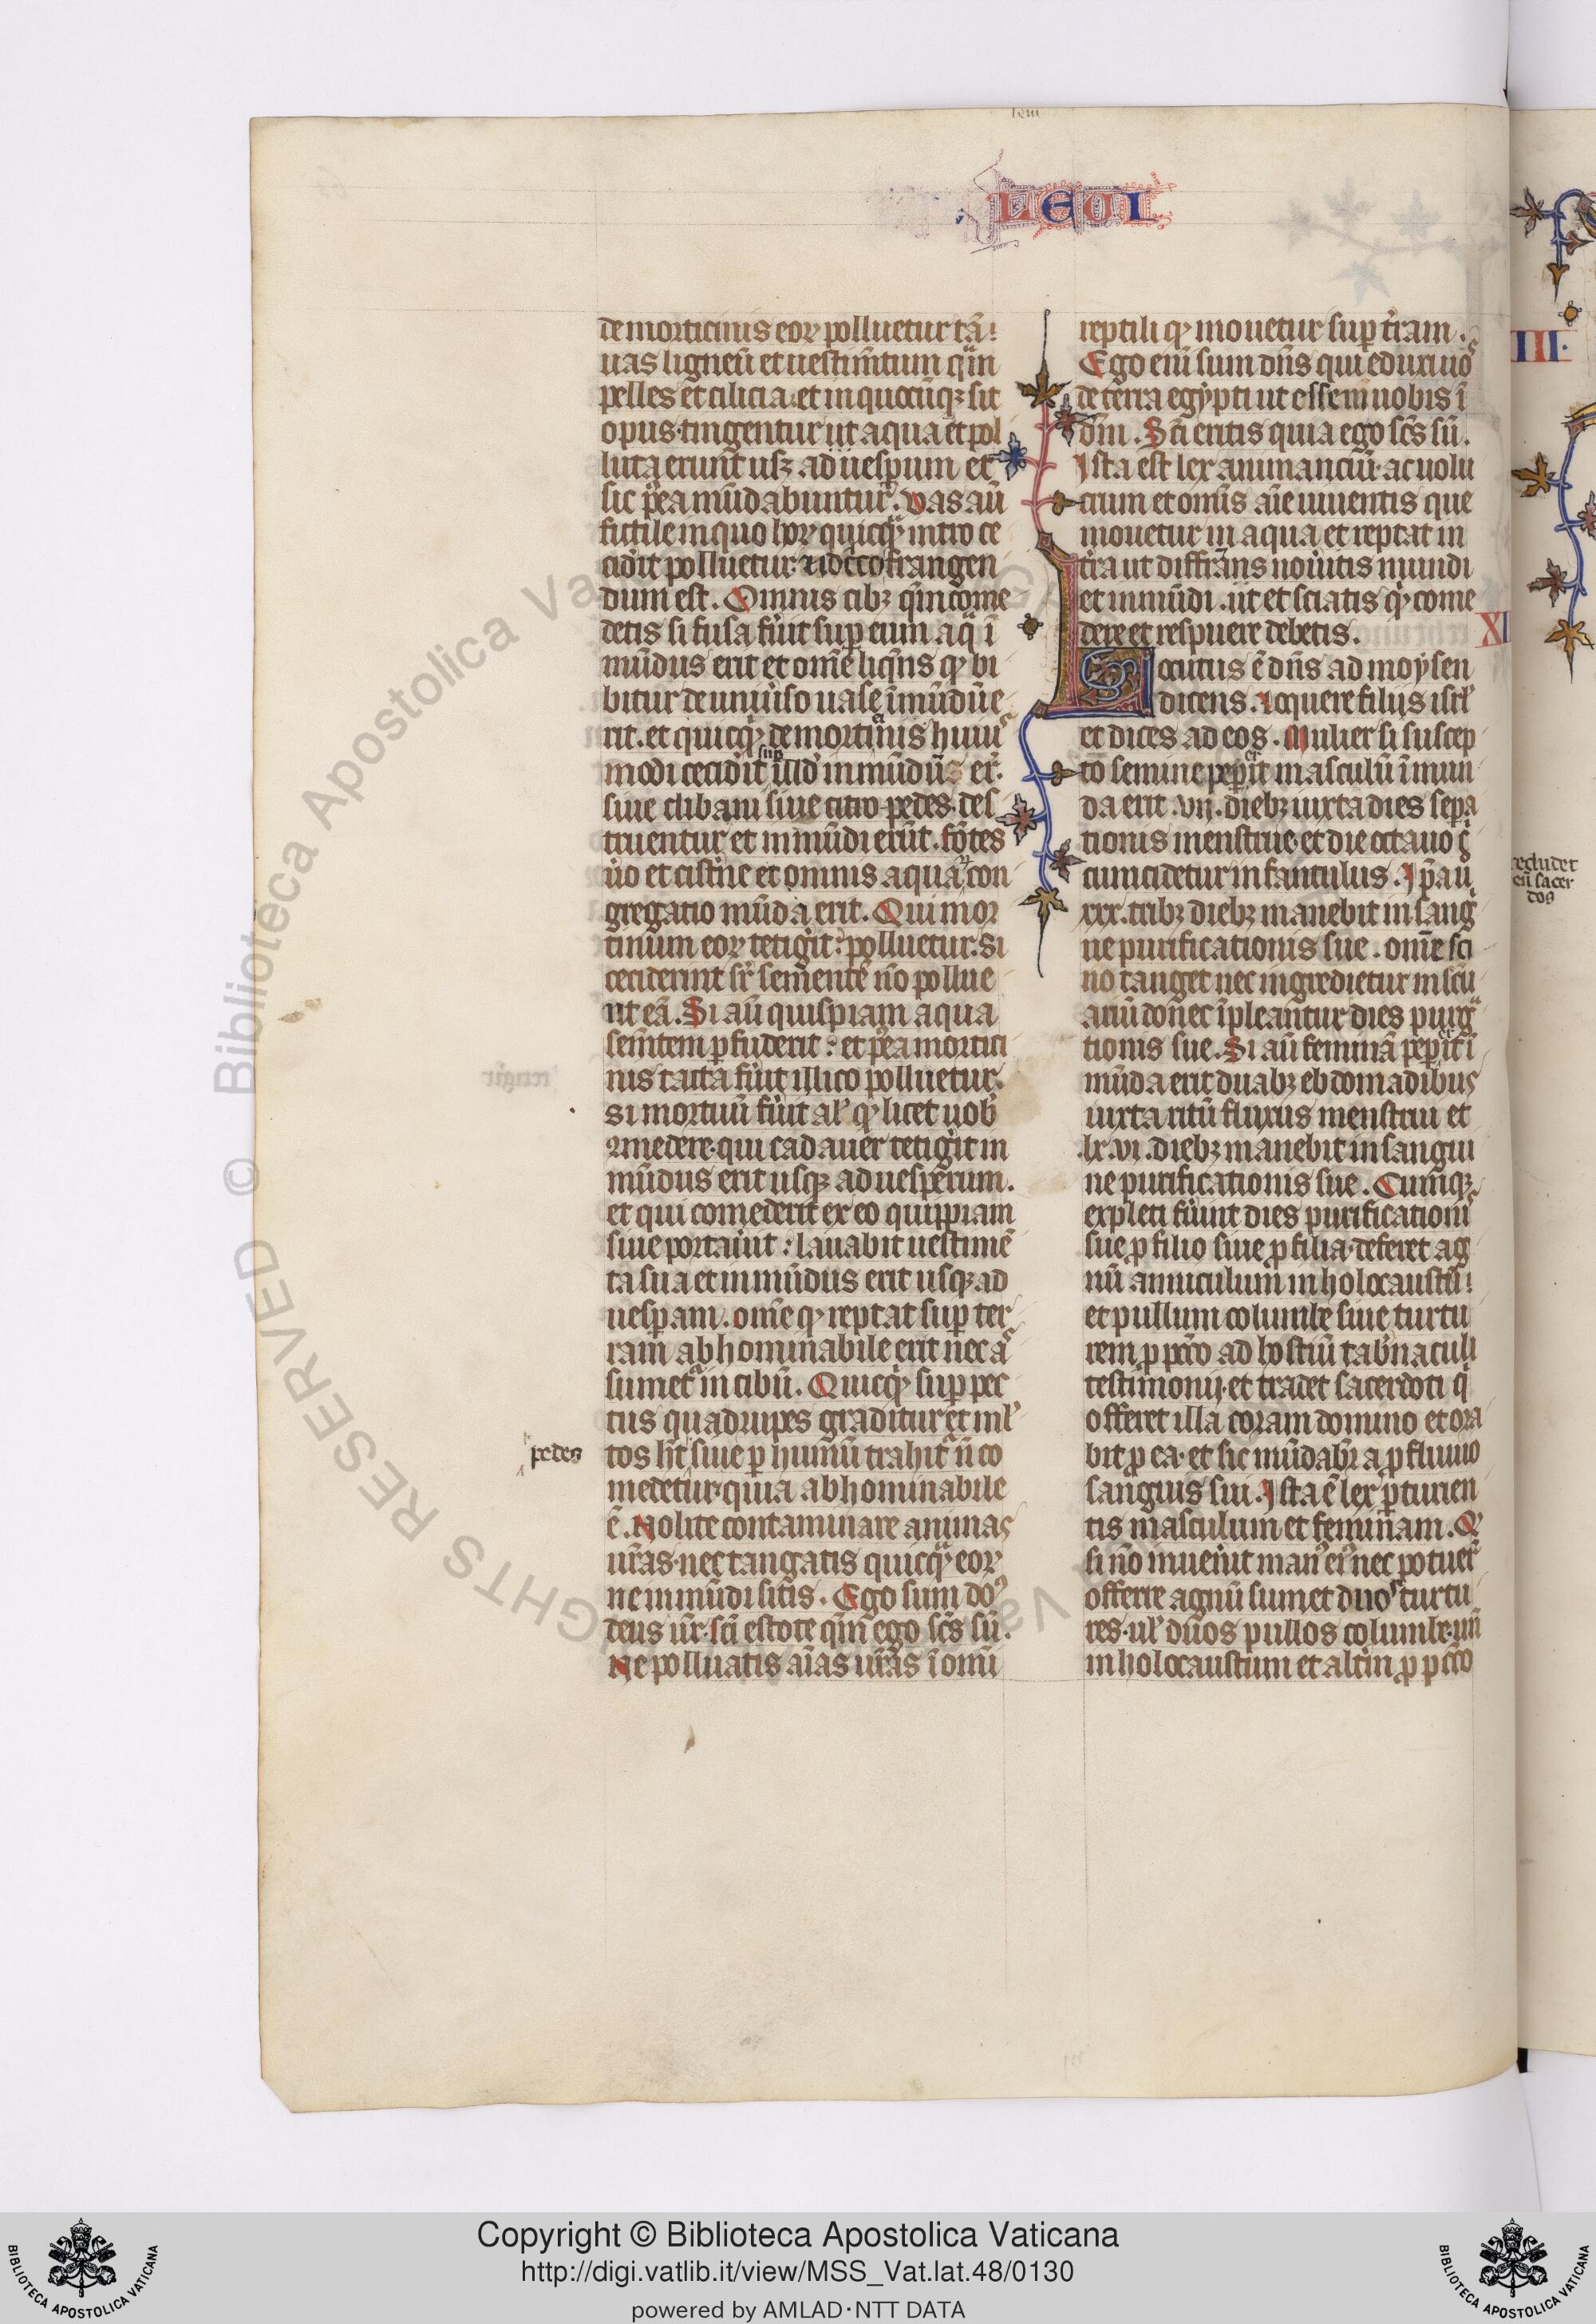 LEUI
de morticinis eoꝝ polluetur tã:
uas ligneũ et uestimtum qin
pelles et cilicia: et in quocũqꝫ fit
opus. tingentur ut aqua et pol
luta erunt usqꝫ ad uesperum et
sic p̃ea mũdabuntur. Vas aũ
fictile in quo hoꝝ quicq̃ intro ce
ciderit polluetur: ⁊ idcirco frangen
dum est. Omnis cibꝫ q̃m come
detis si fusa fũit super eum aq̃ ĩ
mũdus erit et om̃e liq̃ns qđ bi
bitur de uniũso uase ĩmũdũ e
rit. et quicqđ de morticinis huiꝰ
modi ceciderit sup illđ inmũdũ er̃.
siue clibani siue citropedes. des
truentur et inmũdi erũt. fõtes
ũo et cist̃ne et omnis aquaꝝ con
gregatio mũda erit. Qui mor
tinum eoꝝ tetigit: polluetur. Si
ceciderint sr̃ sementẽ nõ pollue
nt eã. Si aũ quispiam aqua
sem̃tem perfuderit: et p̃ea mortici
nis tacta fũit illico polluetur.
Si mortuũ fũit al̃ qđ licet uob̃
ꝯmedere. qui cadauer tetigit in
mũdus erit usqꝫ ad uesperum.
et qui comederit ex eo quippiam
siue portaũit: lauabit uestimẽ
ta sua et inmũdus erit usqꝫ ad
uesperam. om̃e qđ reptat super ter
ram abhominabile erit nec aſ
sumetr̃ in cibũ. Quicqđ super pec
tus quadrupes graditur et ml̃
pedes
tos h̃t siue per humũ trahitr̃ ñ co
medetur. quia abhominabile
ẽ. Nolite contaminare animas
ur̃as. nec tangatis quicq̃ eoꝝ
ne inmũdi sitis. Ego sum do꣯
deus ur̃. sc̃i estote qm̃ ego sc̃s sũ.
Ne polluatis aĩas ur̃as ĩ omĩ
reptili qđ mouetur super t̃ram.
Ego enĩ sum dñs qui eduxi uoſ
de terra egypti ut essem uobis ĩ
dm̃. Sc̃i eritis quia ego sc̃s sũ.
Ista est lex animanciũ. ac uolu
crum et omñs aĩe uiuentis que
mouetur in aqua et reptat in
t̃ra ut differ̃ns noũitis mundi
et inmũdi. ut et sciatis qđ come
dere et respuere debetis.
XI
Locutus ẽ dñs ad moysen
dicens. Loquere filiis isrl̃
et dices ad eos. Mulier si suscep
to semine pepererit masculũ ĩmun
da erit .vii. diebꝫ iuxta dies sepa
tionis menstrue. et die octauo c̃
cumcidetur infantulus. Ip̃a aũ
xxx. tribꝫ diebꝫ manebit in sang
ne purificationis sue. om̃e sc̃i
nõ tanget nec ingredietur in scũ
ariũ donec ĩpleantur dies purg
tionis sue. Si aũ feminã pepererit ĩ
mũda erit duabꝫ ebdomadibus
iuxta ritũ fluxus menstrui et
.lx.vi. diebꝫ manebit in sangui
ne purificationis sue. Cumqꝫ
expleti fũint dies purificationiſ
sue pro filio siue pro filia. deferet ag
nũ anniculum in holocaustũ:
et pullum columbe siue turtu
rem pro pcc̃o ad hostiũ tab̃naculi
testimonij. et tradet sacerdoti q̃
offeret illa coram domino et ora
bit pro ea. et sic mũdabr̃ a profluuio
sanguĩs sui. Ista ẽ lex perturien
tis masculum et feminam. Qđ
si nõ inuen̂it manꝰ eiꝰ nec potuer̃
offerre agnũ sumet duos turtu
res. ul̃ duos pullos columbe. un̄
in holocaustum et altĩm pro pcc̃o
III.
recludet
eũ sacer
dos
Copyright © Biblioteca Apostolica Vaticana
http://digi.vatlib.it/view/MSS_Vat.lat.48/0130
powered by AMLAD·NTT DATA
BIBLIOTECA APOSTOLICA VATICANA
BIBLIOTECA APOSTOLICA VATICANA